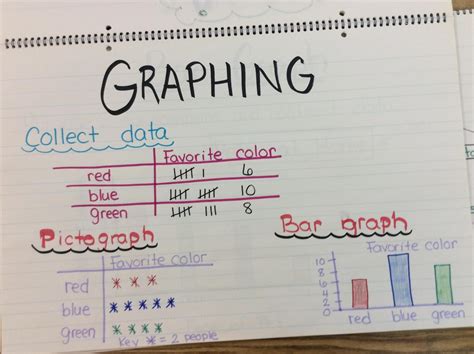 GRAPHING
Collect data
Favorite color
red 6
blue 10
green 8
Pictograph
Favorite color
red
blue
green
Key * = 2 people
Bar graph
Favorite color
10
8
6
4
2
0
red blue green